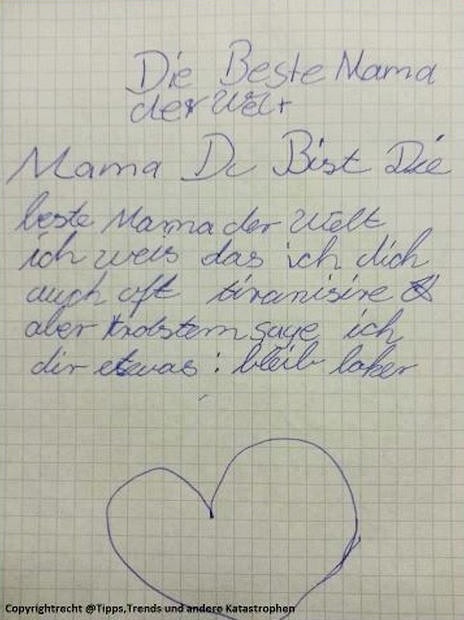 Die Beste Mama
der Welt
Mama Du Bist Die
beste Mama der Welt
ich weis das ich dich
auch oft tiranisire
aber trobstem sage ich
dir etwas: bleib loker
Copyrightrecht @Tipps,Trends und andere Katastrophen